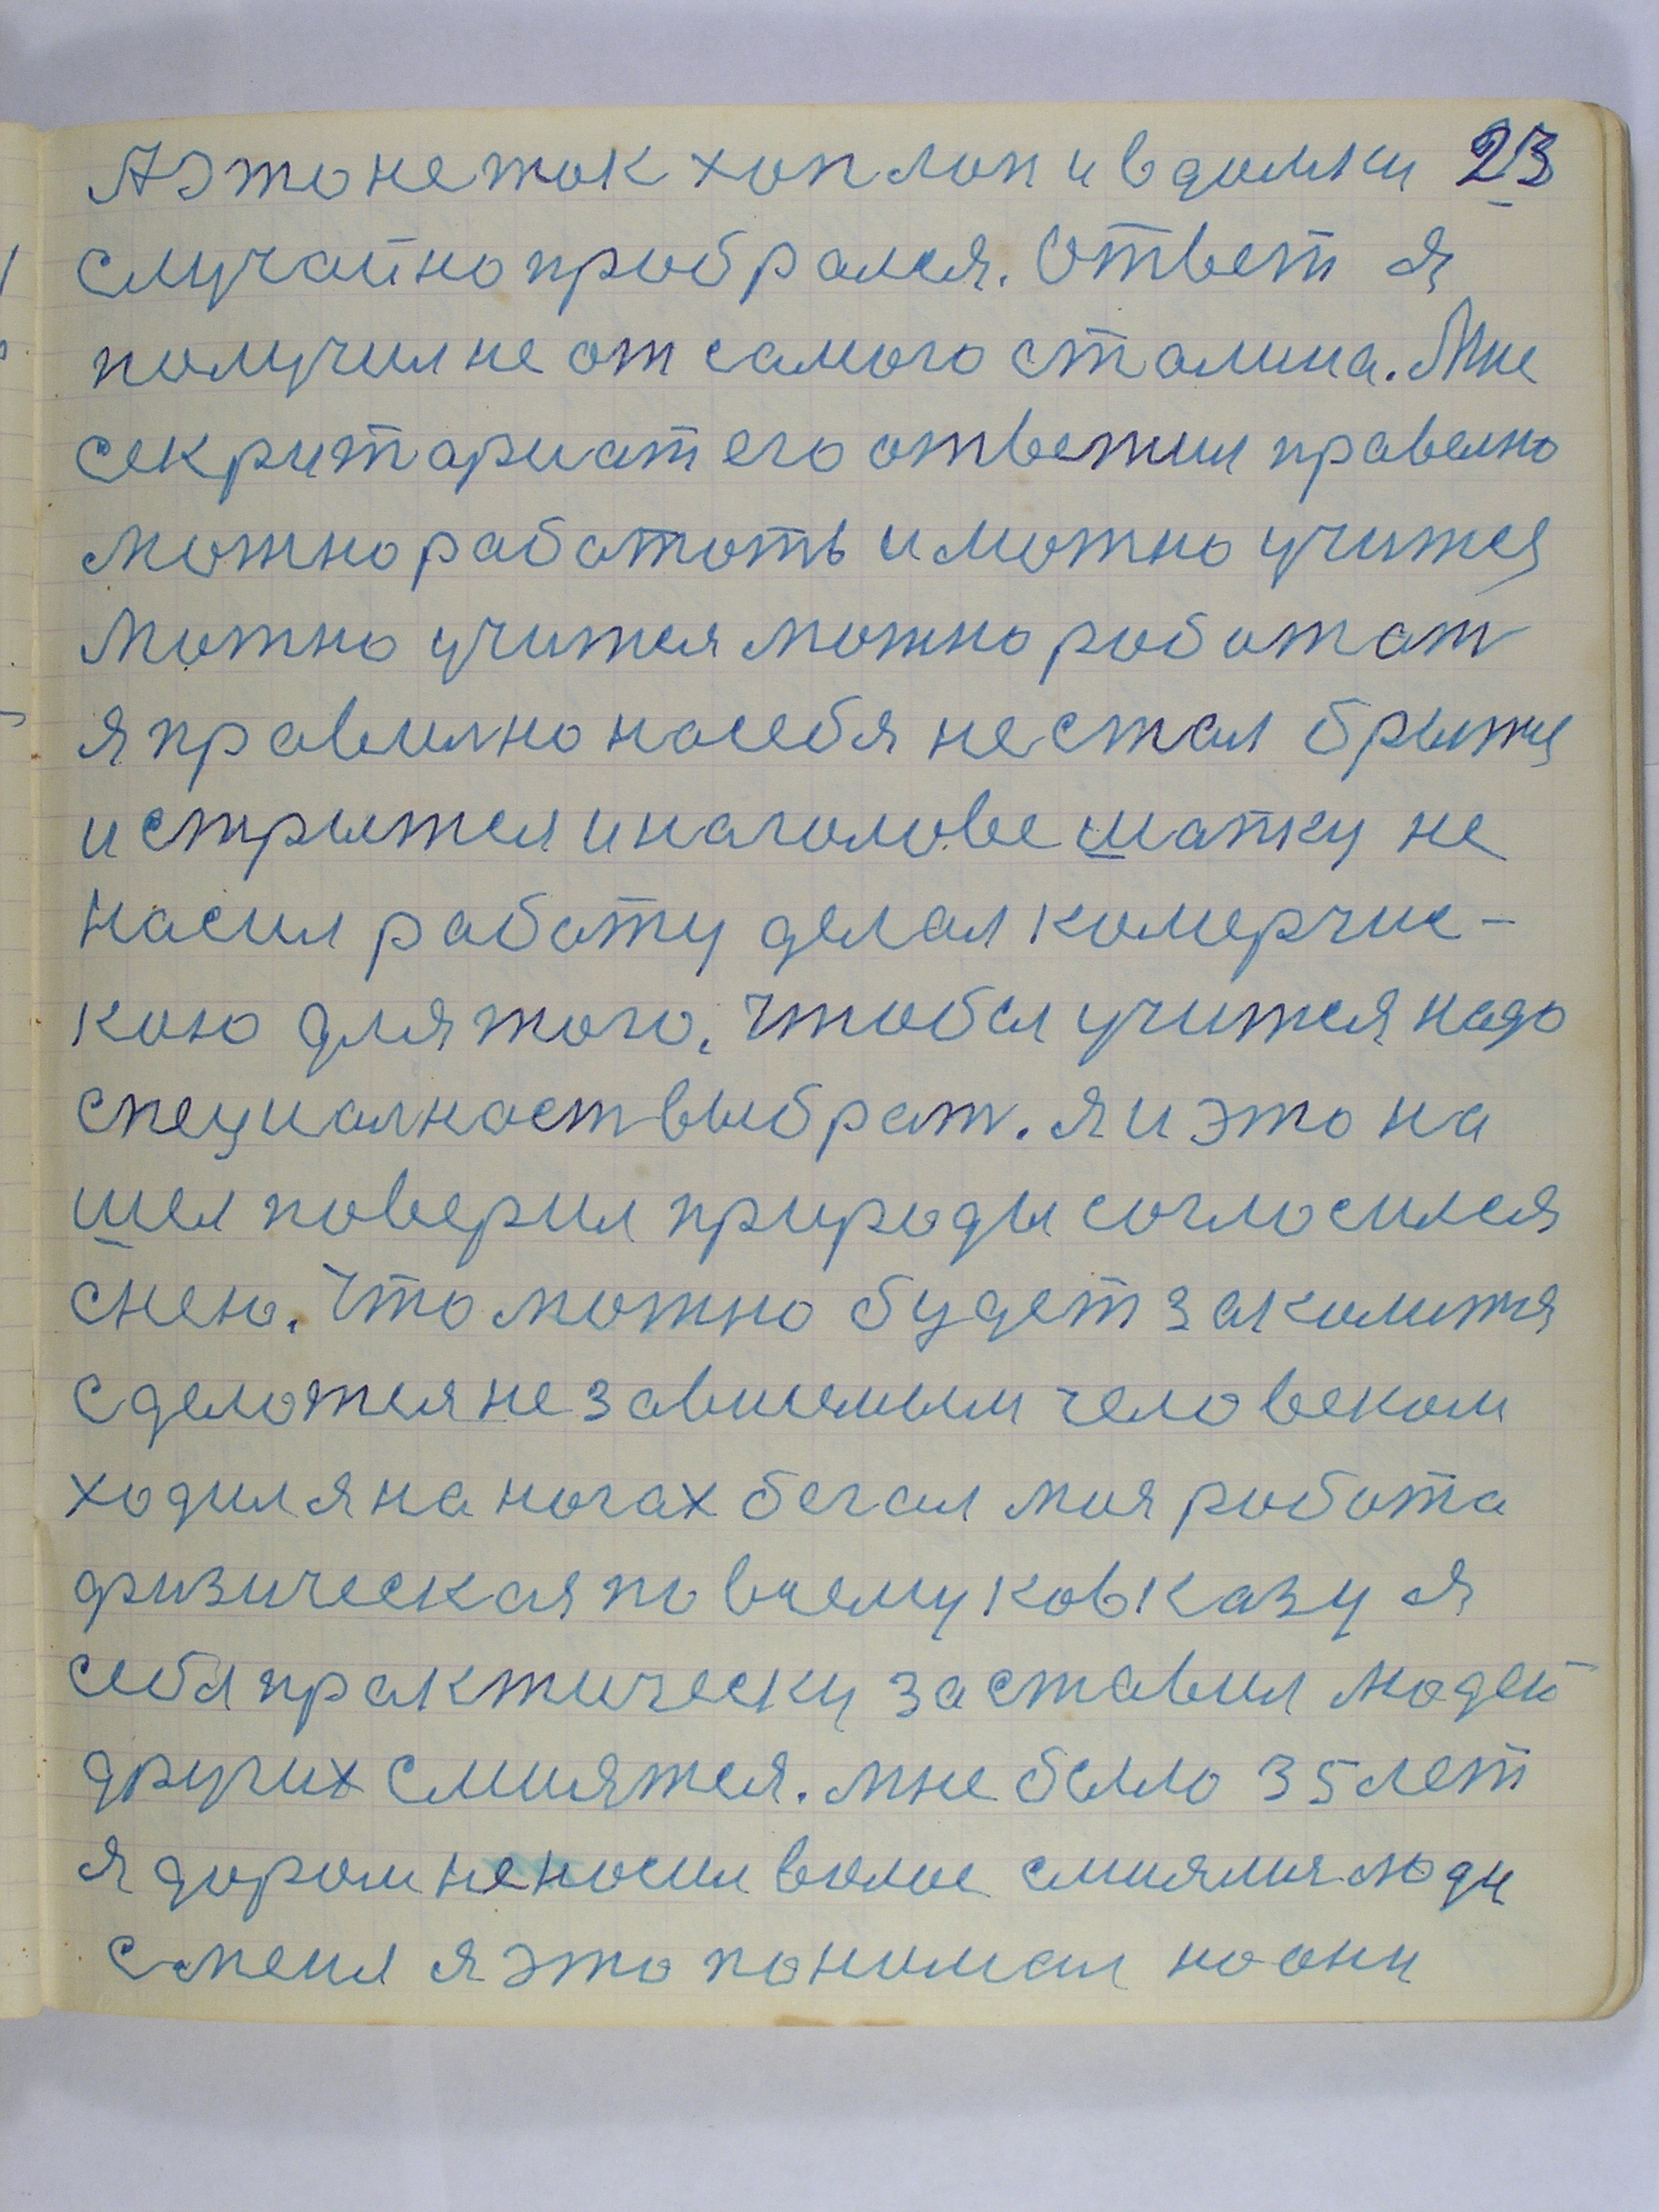 А это не так хоп лоп и в домки 23
случайно пробрался. Ответ я
получил не от самого сталина. Мне
секритариат его ответил правелно
можно работоть и можно учится
Можно учится можно работат
я правилно на себя не стал брится
и стрытся и наголове шапку не
насил работу делал комерчис-
кою для того, чтобы учится надо
специалност выбрат. я и это на
шел поверил природы согласился
снею. Что можно будет закалится
сделатся не зависимым человеком
ходил я на ногах бегал моя работа
физическая по всему ковказу я
себя практически заставил людей
других смиятся. мне было 35 лет
я даром не носил волос смиялися люди
смеил я это понимал но они